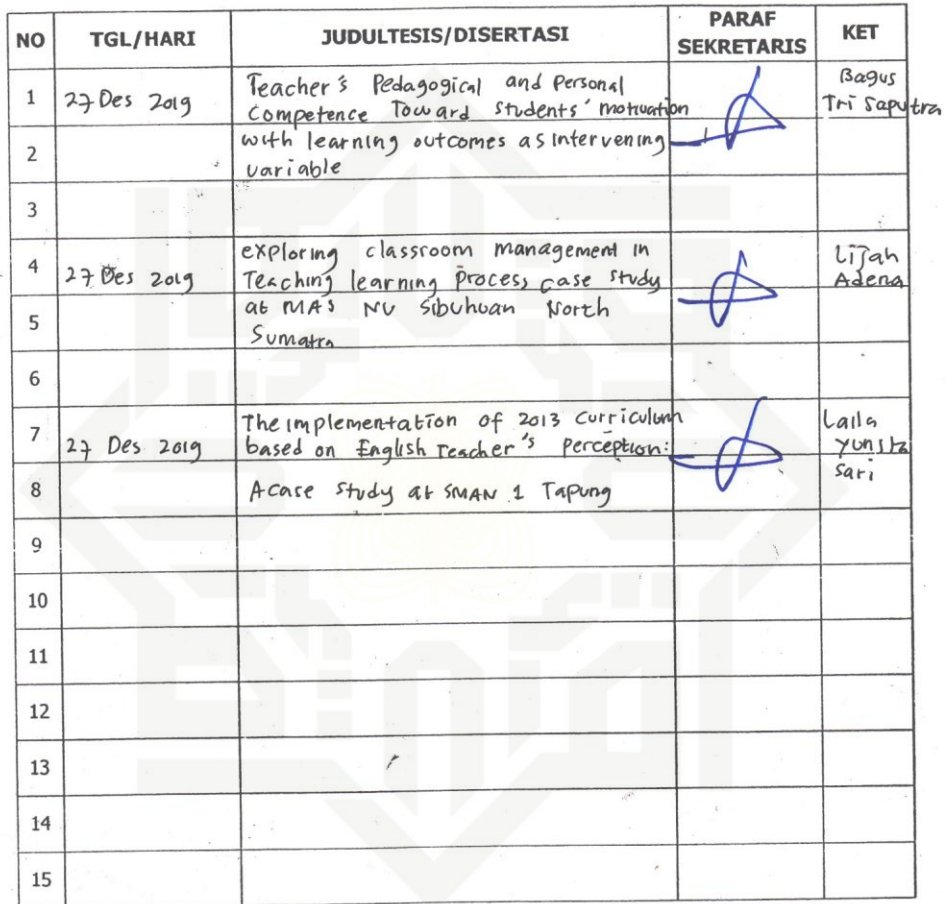 NO TGL/HARI JUDULTESIS/DISERTASI PARAF SEKRETARIS KET
1 27 Des 2019 Teacher's Pedagogical and Personal Competence Toward students' motivation Bagus Tri Saputra
2 with learning outcomes as intervening variable
3
4 27 Des 2019 exploring classroom management in Teaching learning Process, case study Lijah Adena
5 at MAS NU Sibuhuan North Sumatra
6
7 27 Des 2019 The implementation of 2013 curriculum based on English Teacher's perception: Laila Yunita Sari
8 A case study at SMAN 1 Tapung
9
10
11
12
13
14
15